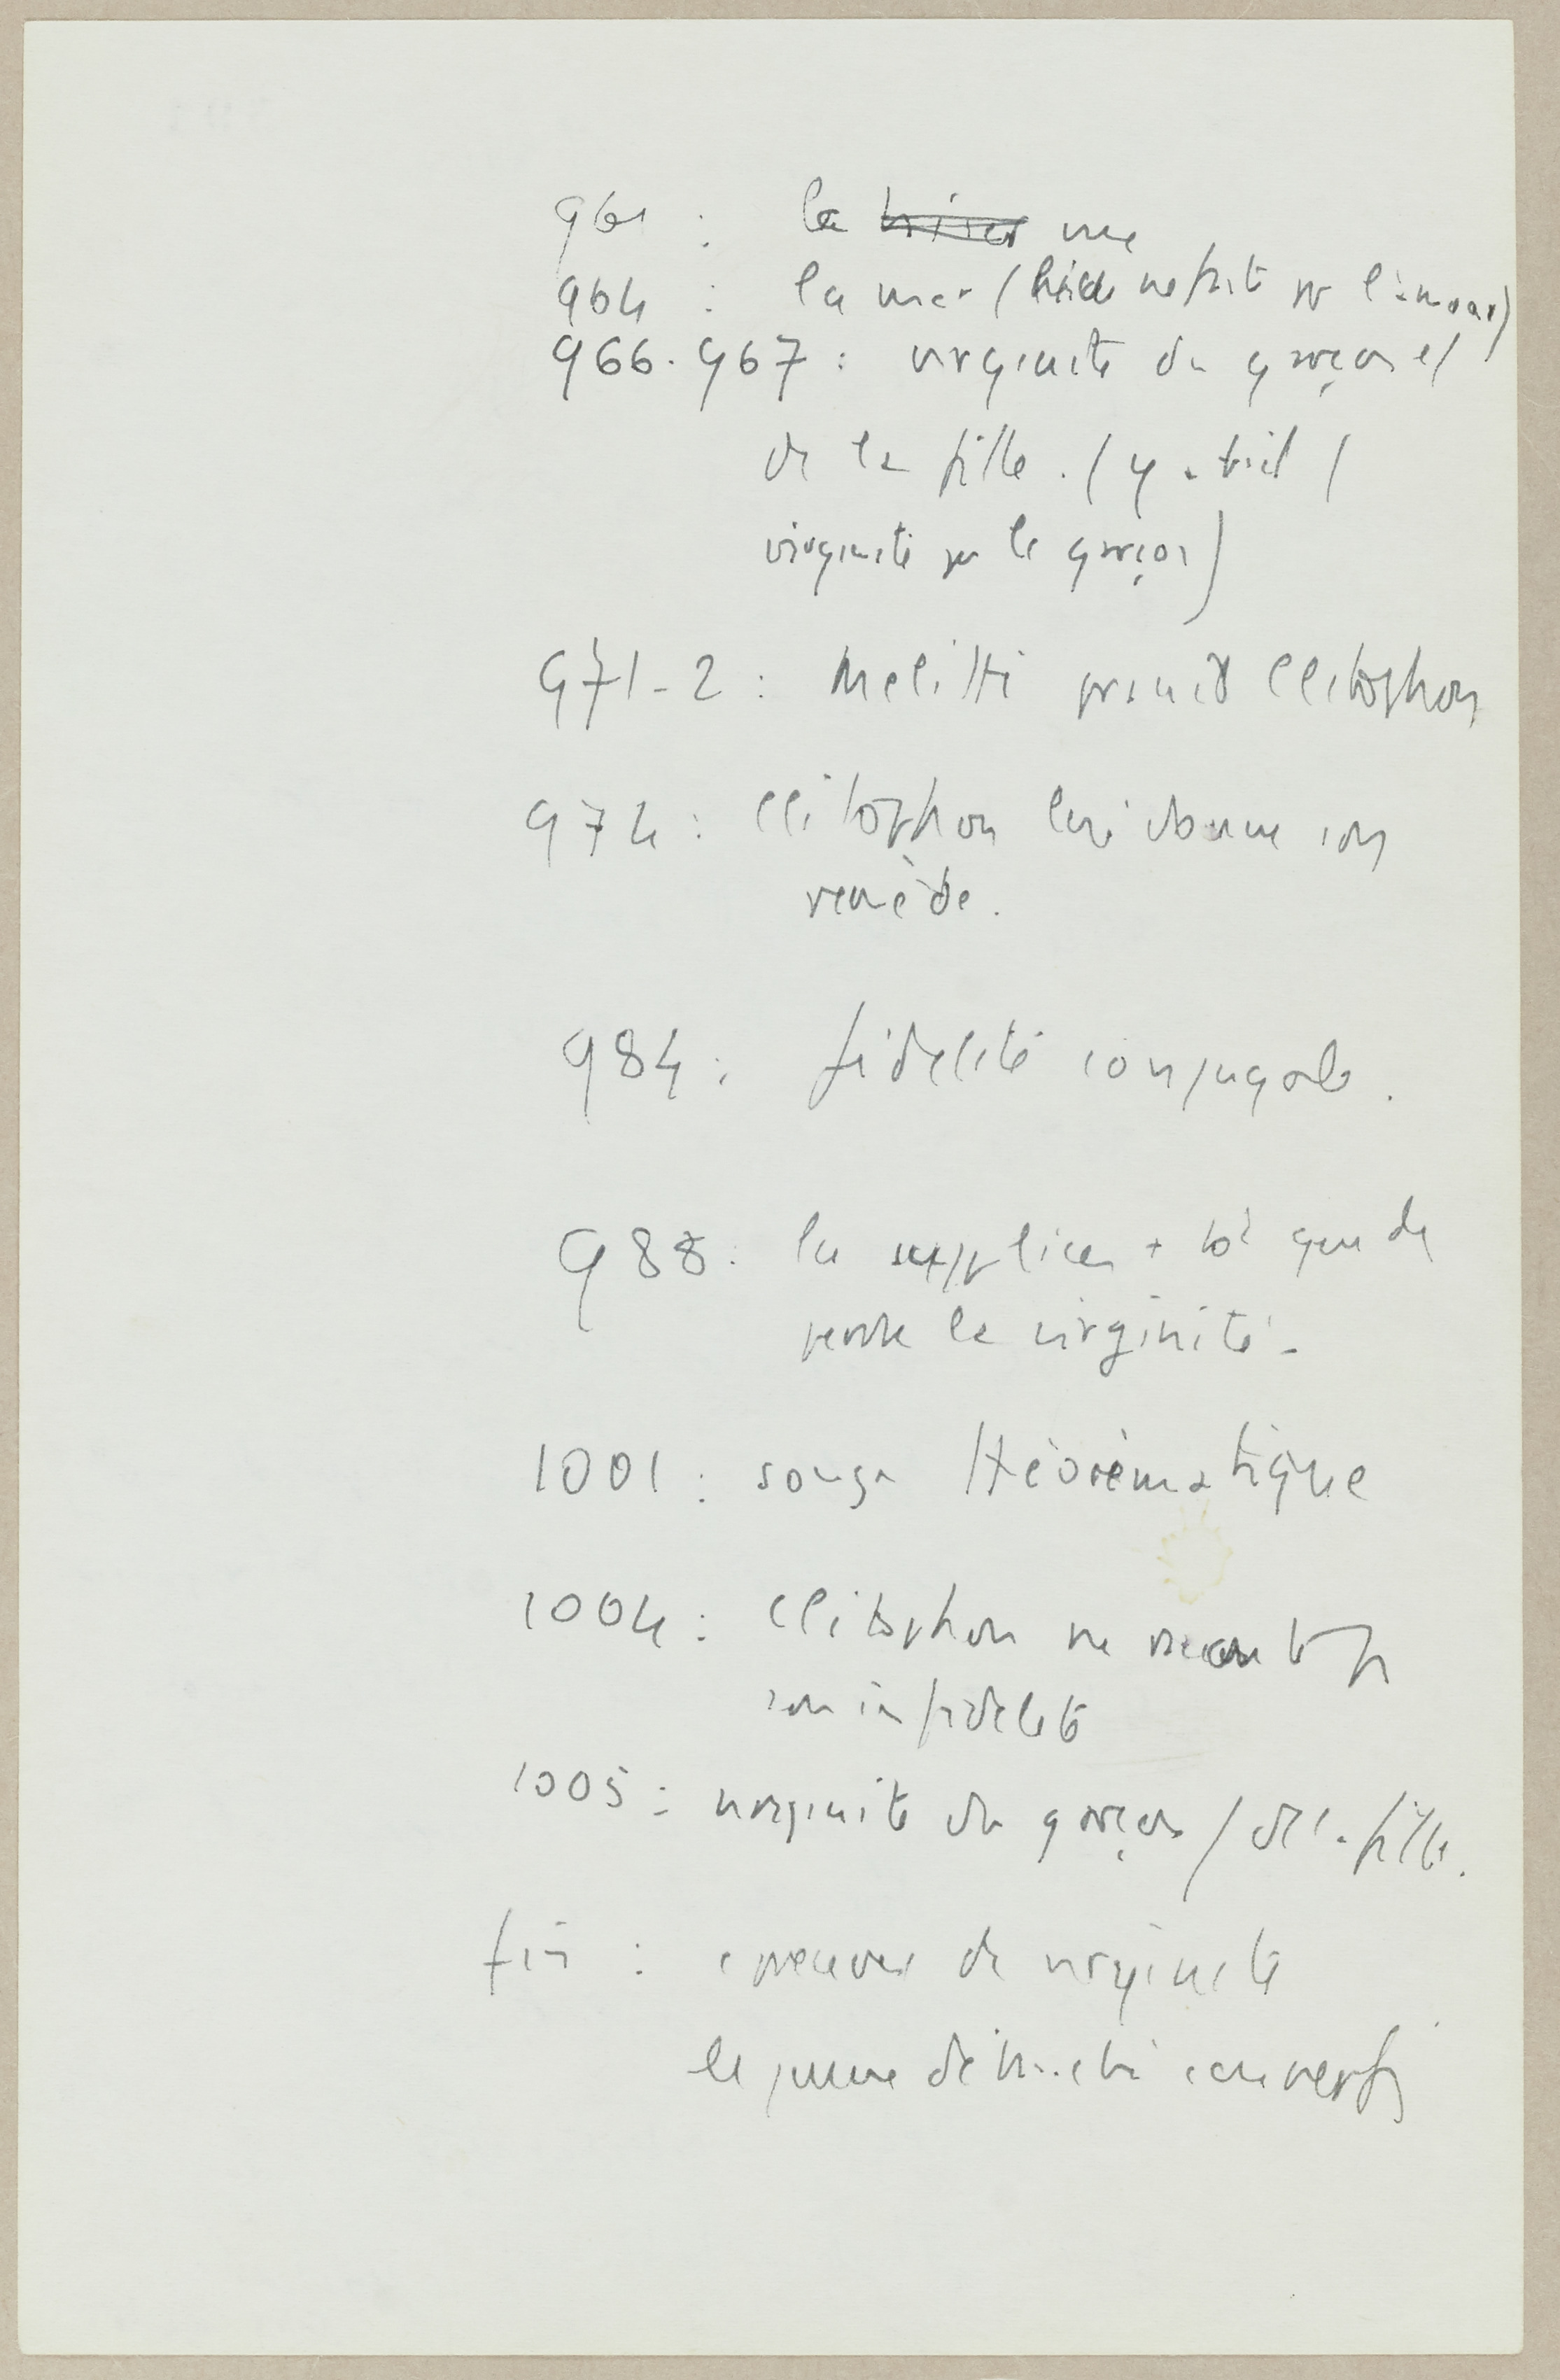 961 : la vue
964 : la mer ( pas fait pr l'amour)
966-967 : virginité du garçon et
de la fille. (y a-t-il 1
virginité pr le garçon)
971-2 : Meliti Clitophon
974 : Clitophon lui donne son
remède.
984 : fidélité conjugale.
988 : les supplices + tôt que de
perdre la virginité -
1001 : songe théorématique
1004 : Clitophon ne raconte pas
son infidélité
1005 : virginité du garçon / de la fille.
fin : épreuves de virginité
le jeune débauché converti